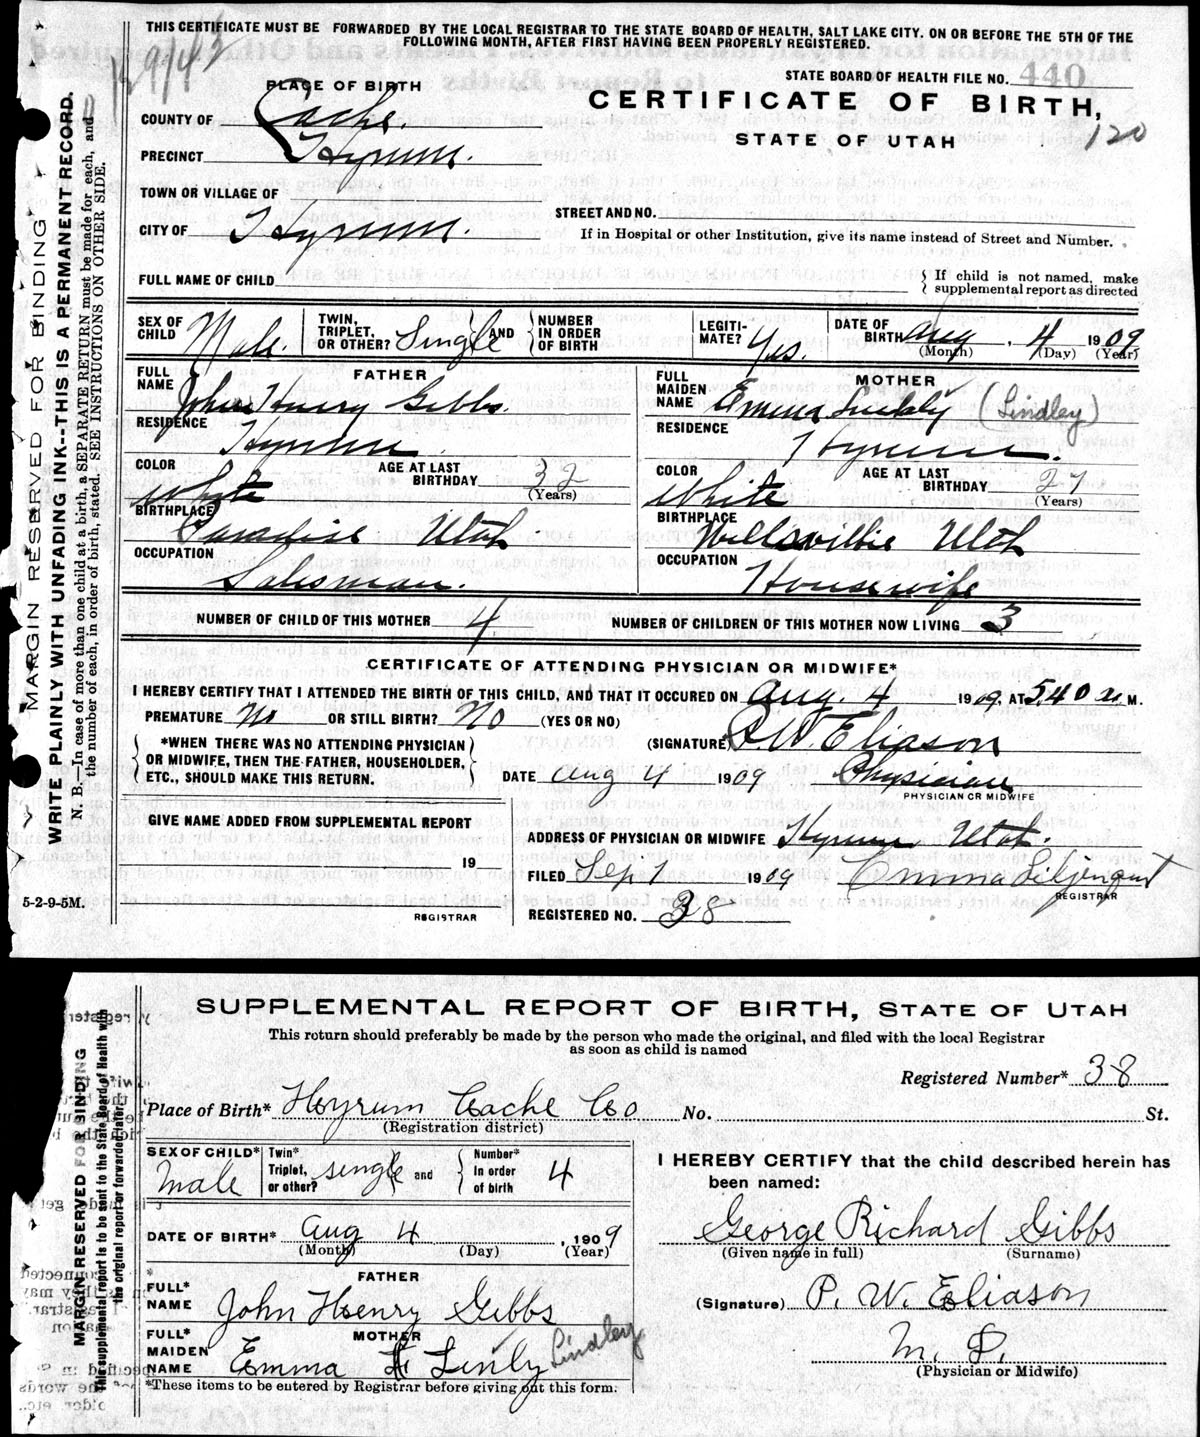 THIS CERTIFICATE MUST BE FORWARDED BY THE LOCAL REGISTRAR TO THE STATE BOARD OF HEALTH, SALT LAKE CITY. ON OR BEFORE THE 5TH OF THE
FOLLOWING MONTH, AFTER FIRST HAVING BEEN PROPERLY REGISTERED.
STATE BOARD OF HEALTH FILE NO. 440
PLACE OF BIRTH
CERTIFICATE OF BIRTH,
STATE OF UTAH
120
COUNTY OF Cache.
PRECINCT Hyrum.
TOWN OR VILLAGE OF
STREET AND NO.
CITY OF Hyrum.
If in Hospital or other Institution, give its name instead of Street and Number.
FULL NAME OF CHILD
{ If child is not named, make
supplemental report as directed
SEX OF CHILD Male.
TWIN, TRIPLET, OR OTHER? Single
AND { NUMBER IN ORDER OF BIRTH
LEGITI-MATE? Yes.
DATE OF BIRTH Aug. 4 1909
(Month) (Day) (Year)
FATHER
FULL NAME John Henry Gibbs.
RESIDENCE Hyrum
COLOR Whyte
AGE AT LAST BIRTHDAY 32
(Years)
BIRTHPLACE Paradise Utah
OCCUPATION Salesman.
MOTHER
FULL MAIDEN NAME Emma (Lindley)
RESIDENCE Hyrum.
COLOR White
AGE AT LAST BIRTHDAY 27
(Years)
BIRTHPLACE Wellsvillie Utah
OCCUPATION Housewife
NUMBER OF CHILD OF THIS MOTHER 4
NUMBER OF CHILDREN OF THIS MOTHER NOW LIVING 3
CERTIFICATE OF ATTENDING PHYSICIAN OR MIDWIFE*
I HEREBY CERTIFY THAT I ATTENDED THE BIRTH OF THIS CHILD, AND THAT IT OCCURED ON Aug. 4 1909, AT 540 a M.
PREMATURE No OR STILL BIRTH? No (YES OR NO)
(SIGNATURE) P. W. Eliason
{ *WHEN THERE WAS NO ATTENDING PHYSICIAN
OR MIDWIFE, THEN THE FATHER, HOUSEHOLDER,
ETC., SHOULD MAKE THIS RETURN. }
DATE Aug 4 1909 Physician
PHYSICIAN OR MIDWIFE
GIVE NAME ADDED FROM SUPPLEMENTAL REPORT
19
REGISTRAR
ADDRESS OF PHYSICIAN OR MIDWIFE Hyrum Utah.
FILED Sep 1 1909 Emma Liljenquist
REGISTRAR
REGISTERED NO. 38
MARGIN RESERVED FOR BINDING
WRITE PLAINLY WITH UNFADING INK--THIS IS A PERMANENT RECORD.
N. B.—In case of more than one child at a birth, a SEPARATE RETURN must be made for each, and
the number of each, in order of birth, stated. SEE INSTRUCTIONS ON OTHER SIDE.
5-2-9-5M.
SUPPLEMENTAL REPORT OF BIRTH, STATE OF UTAH
This return should preferably be made by the person who made the original, and filed with the local Registrar
as soon as child is named
Registered Number* 38
Place of Birth* Hyrum Cache Co No. St.
(Registration district)
SEX OF CHILD* Male
Twin* Triplet, or other? single and
{ Number* In order of birth 4
DATE OF BIRTH* Aug 4, 1909
(Month) (Day) (Year)
FATHER
FULL* NAME John Henry Gibbs
MOTHER
FULL* MAIDEN NAME Emma Linly Lindley
*These items to be entered by Registrar before giving out this form.
I HEREBY CERTIFY that the child described herein has
been named:
George Richard Gibbs
(Given name in full) (Surname)
(Signature) P. W. Eliason
M. D.
(Physician or Midwife)
MARGIN RESERVED FOR BINDING
This supplemental report is to be sent to the State Board of Health with
the original report or forwarded later.